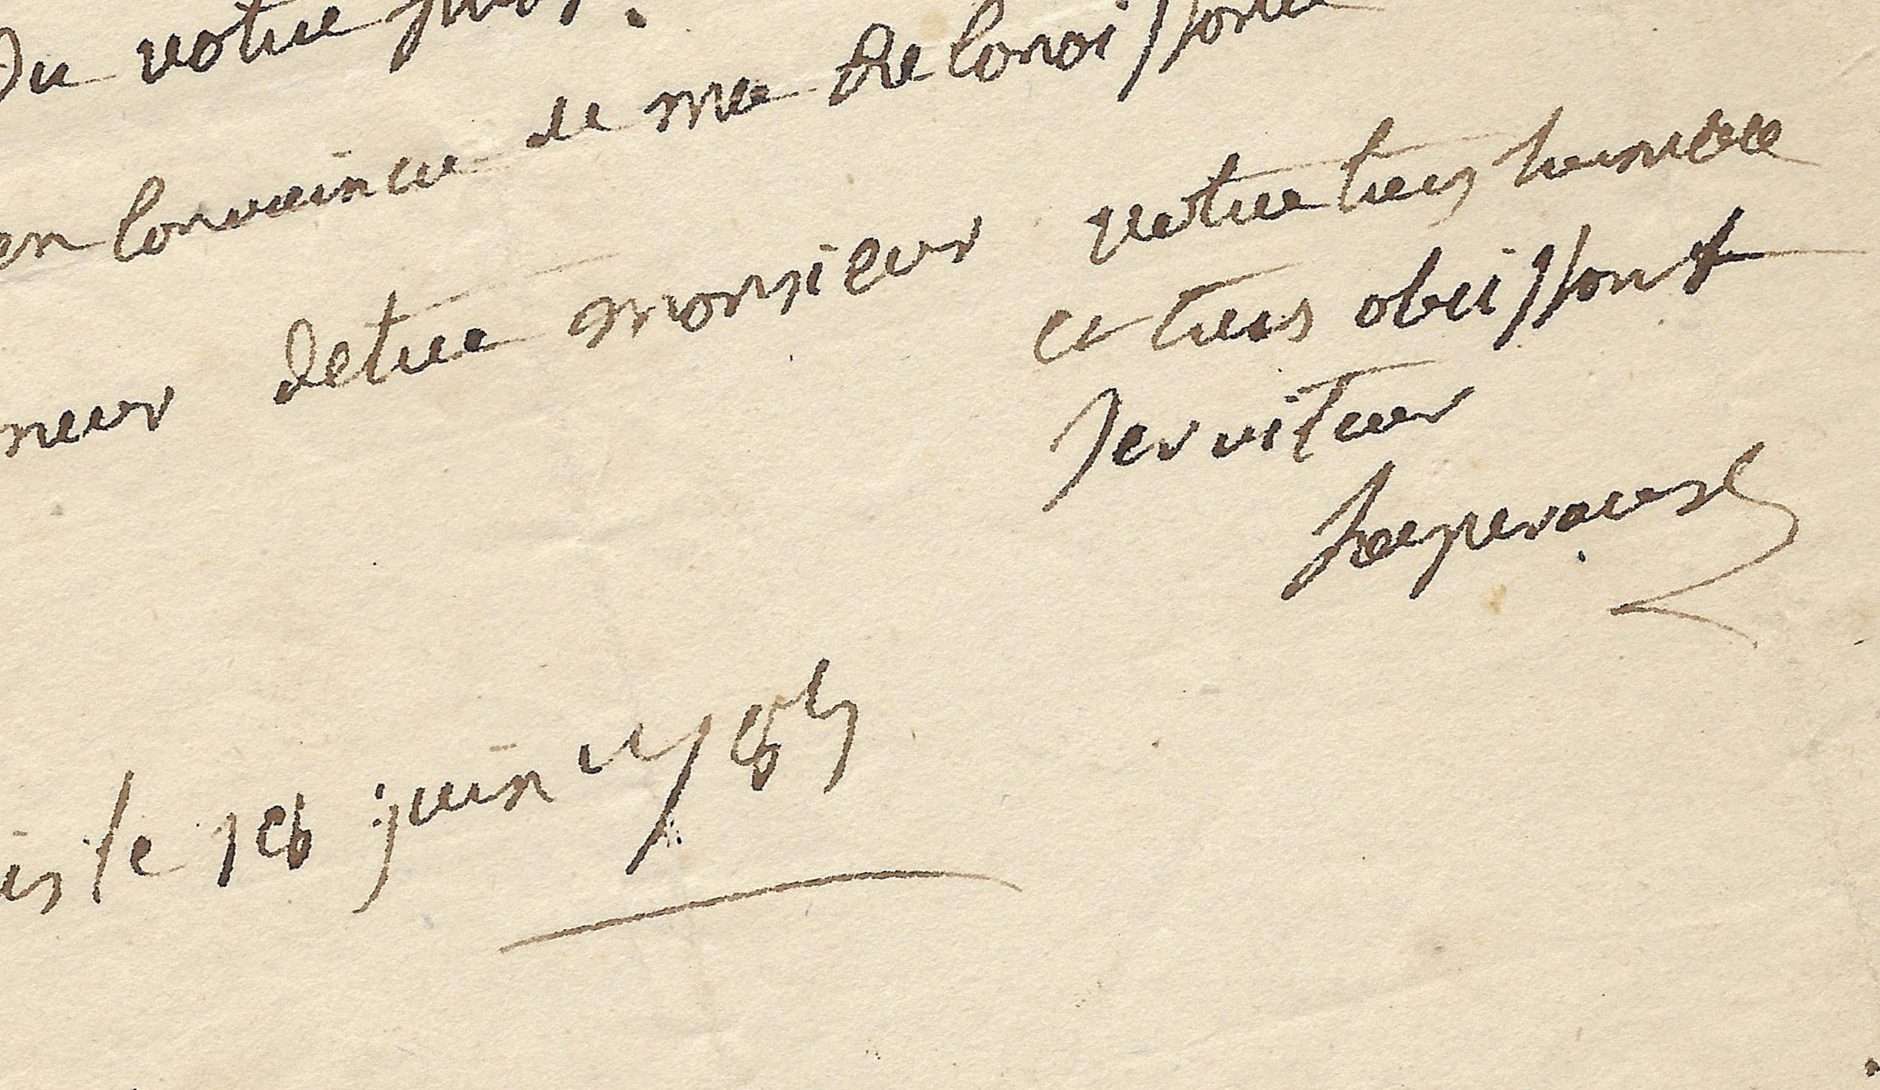 du votre
en convaincu de ma reconoissance
neur detre monsieur votre tres humble
et tres obeissant
serviteur
laperouse
is le 18 juin 1785